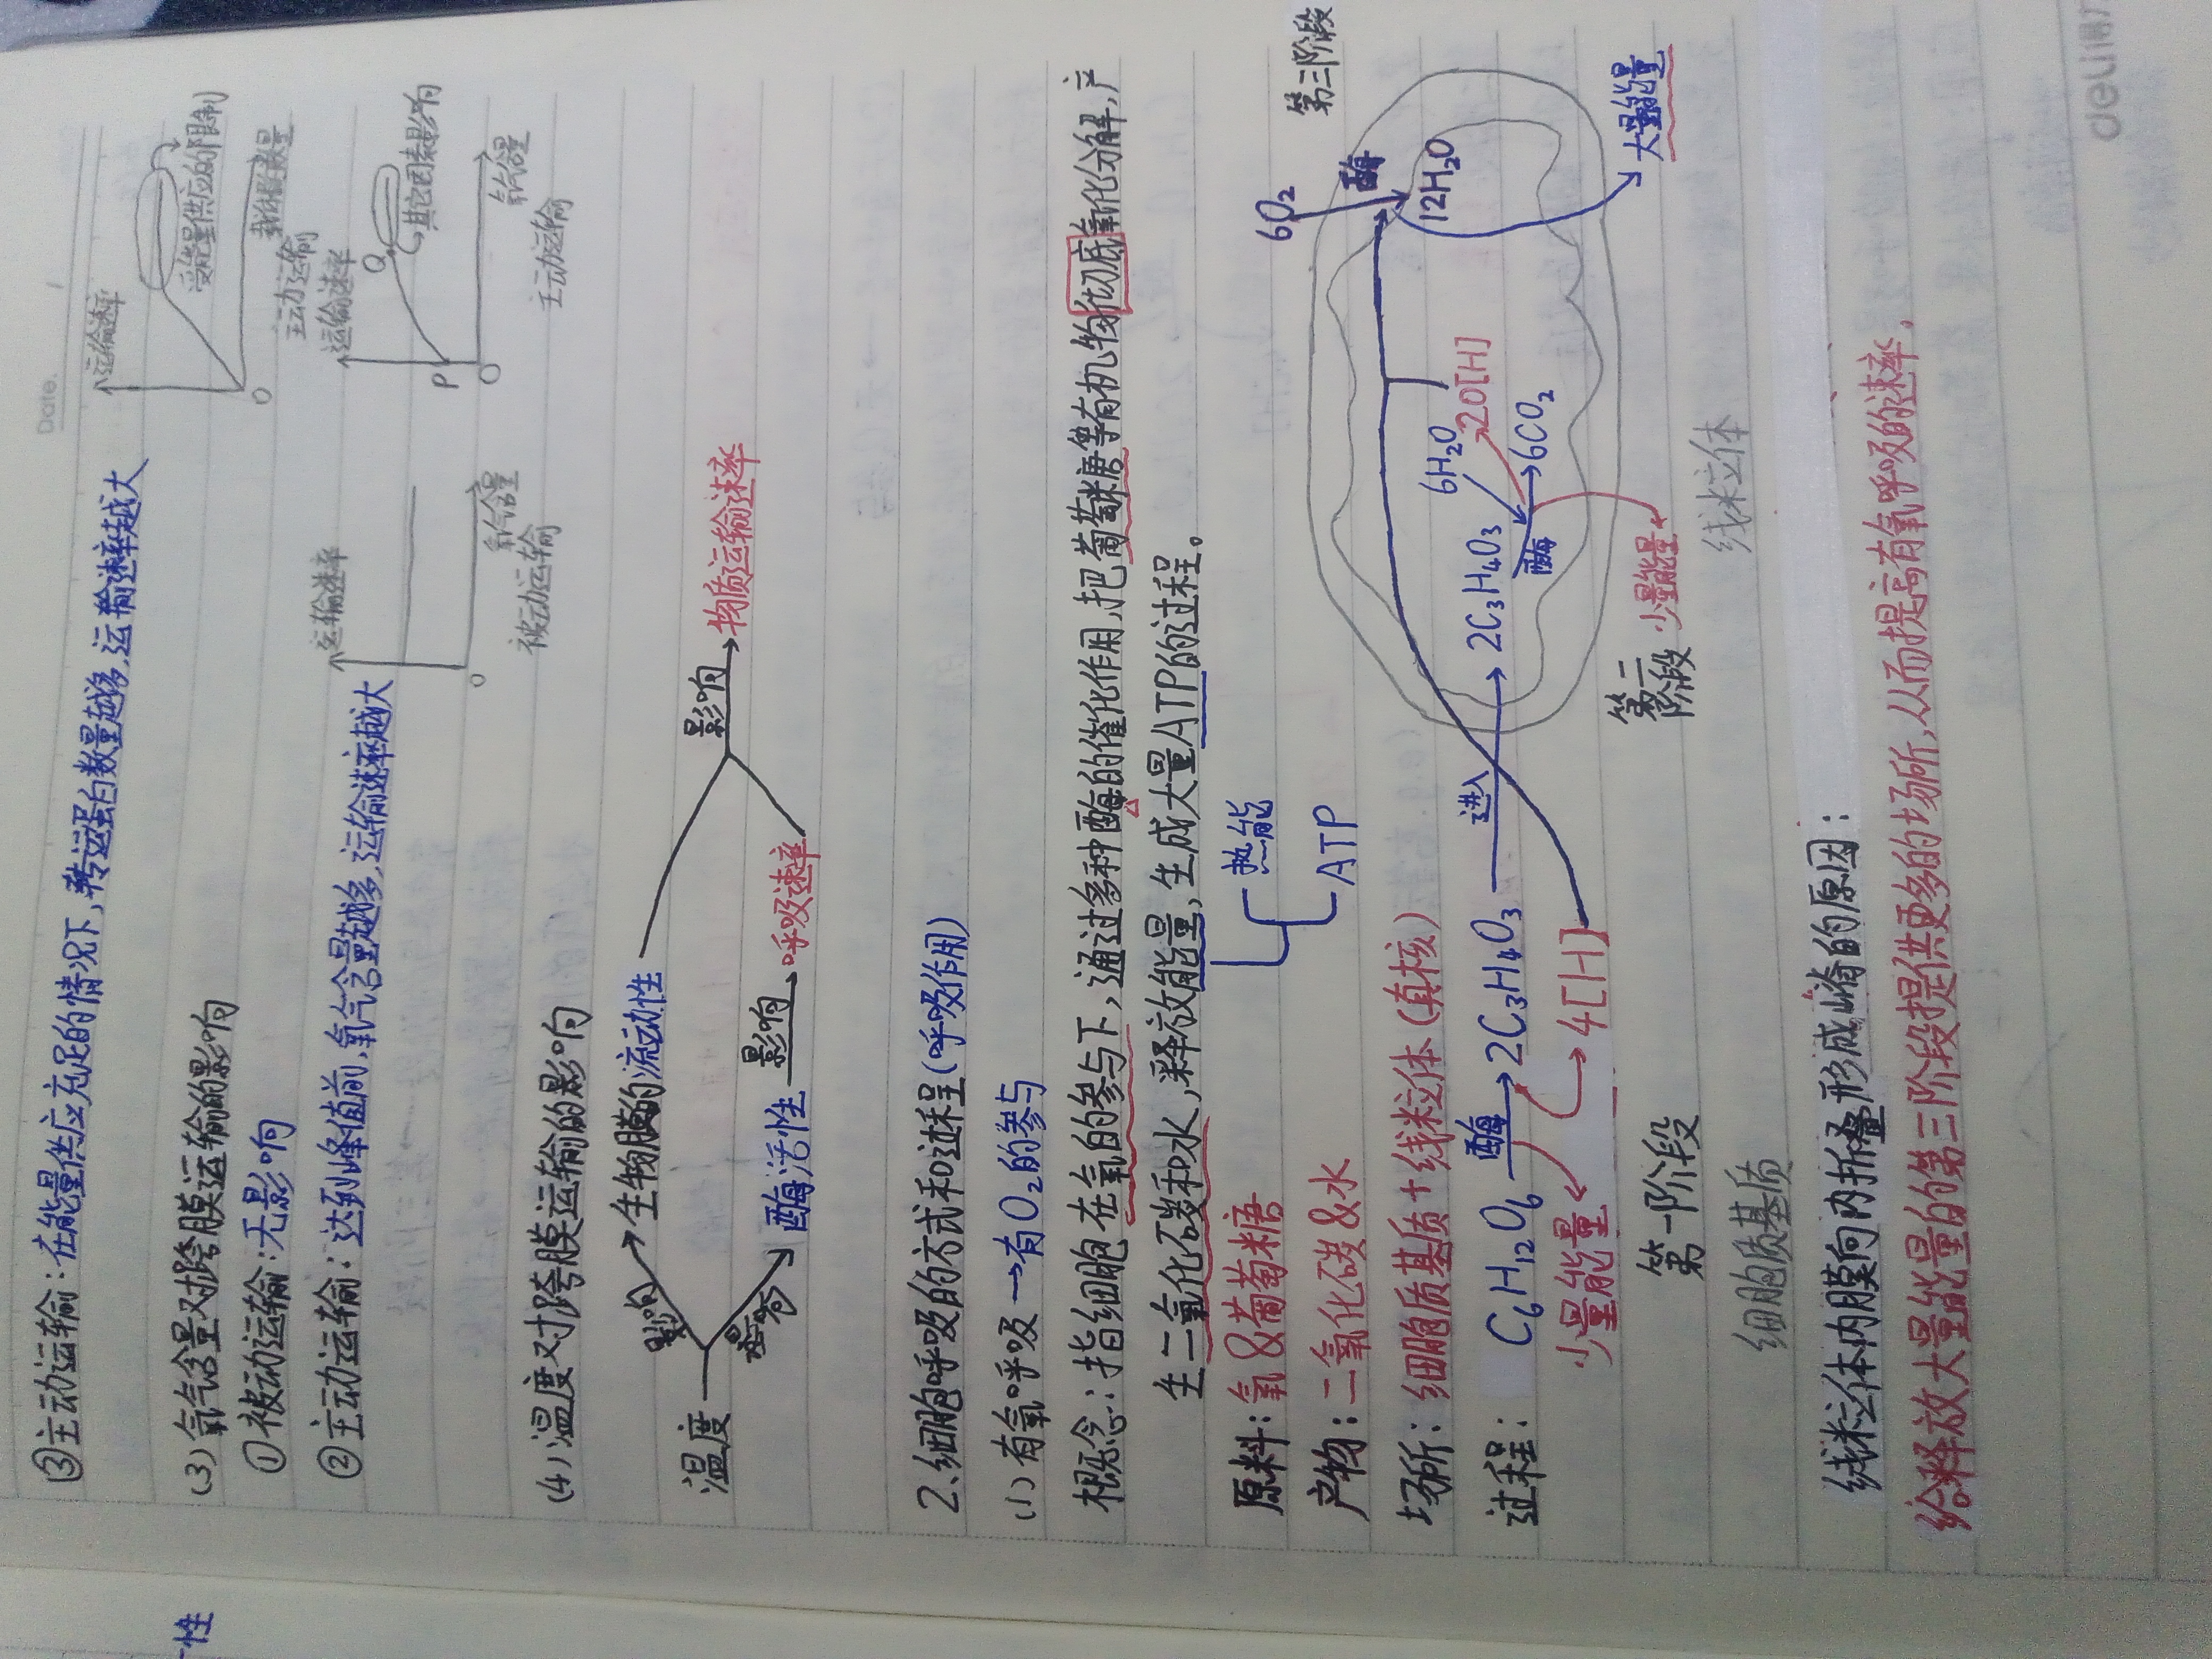 Date.
③主动运输：在能量供应充足的情况下，转运蛋白数量越多，运输速率越大
运输速率
受能量供应的限制
O
载体数量
主动运输
(3) 氧气含量对跨膜运输的影响
①被动运输：无影响
②主动运输：达到峰值前，氧气含量越多，运输速率越大
运输速率
O
氧气含量
被动运输
运输速率
P
Q
其它因素影响
O
氧气含量
主动运输
(4) 温度对跨膜运输的影响
温度
影响
生物膜的流动性
影响
物质运输速率
影响
酶活性
影响
呼吸速率
2.细胞呼吸的方式和过程(呼吸作用)
(1) 有氧呼吸→有O₂的参与
概念：指细胞在氧的参与下，通过多种酶的催化作用，把葡萄糖等有机物彻底氧化分解，产
生二氧化碳和水，释放能量，生成大量ATP的过程。
热能
ATP
原料：氧&葡萄糖
产物：二氧化碳&水
场所：细胞质基质+线粒体(真核)
过程：
C₆H₁₂O₆
酶
2C₃H₄O₃
进入
2C₃H₄O₃
酶
6H₂O
20[H]
6CO₂
少量能量
4[H]
第一阶段
细胞质基质
第二阶段
少量能量
线粒体
6O₂
酶
12H₂O
第三阶段
大量能量
线粒体内膜向内折叠形成嵴的原因：
给释放大量能量的第三阶段提供更多的场所，从而提高有氧呼吸的速率。
deli得力
性